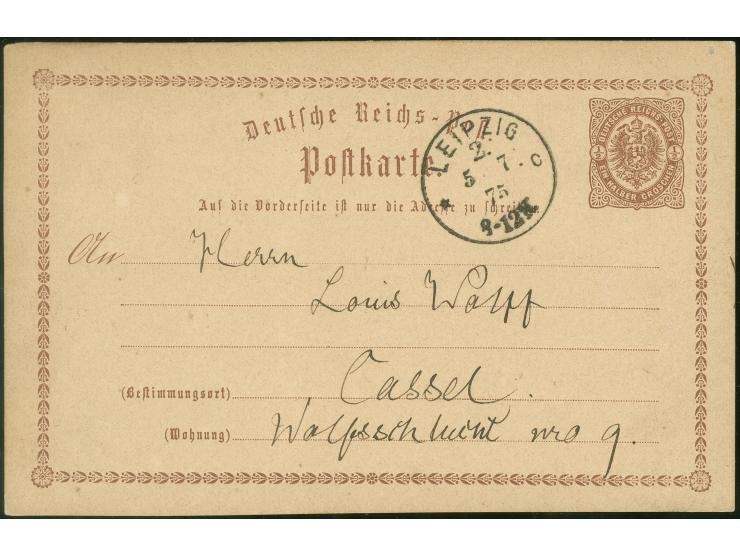 Deutsche Reichs-Post
Postkarte
LEIPZIG
2.
5 7. C
75
8-12V
Auf die Vorderseite ist nur die Adresse zu schreiben.
DEUTSCHE REICHS-POST
½ ½
EIN HALBER GROSCHEN
An Herrn
Louis Wolff
(Bestimmungsort) Cassel.
(Wohnung) Wolfsschlucht nro 9.